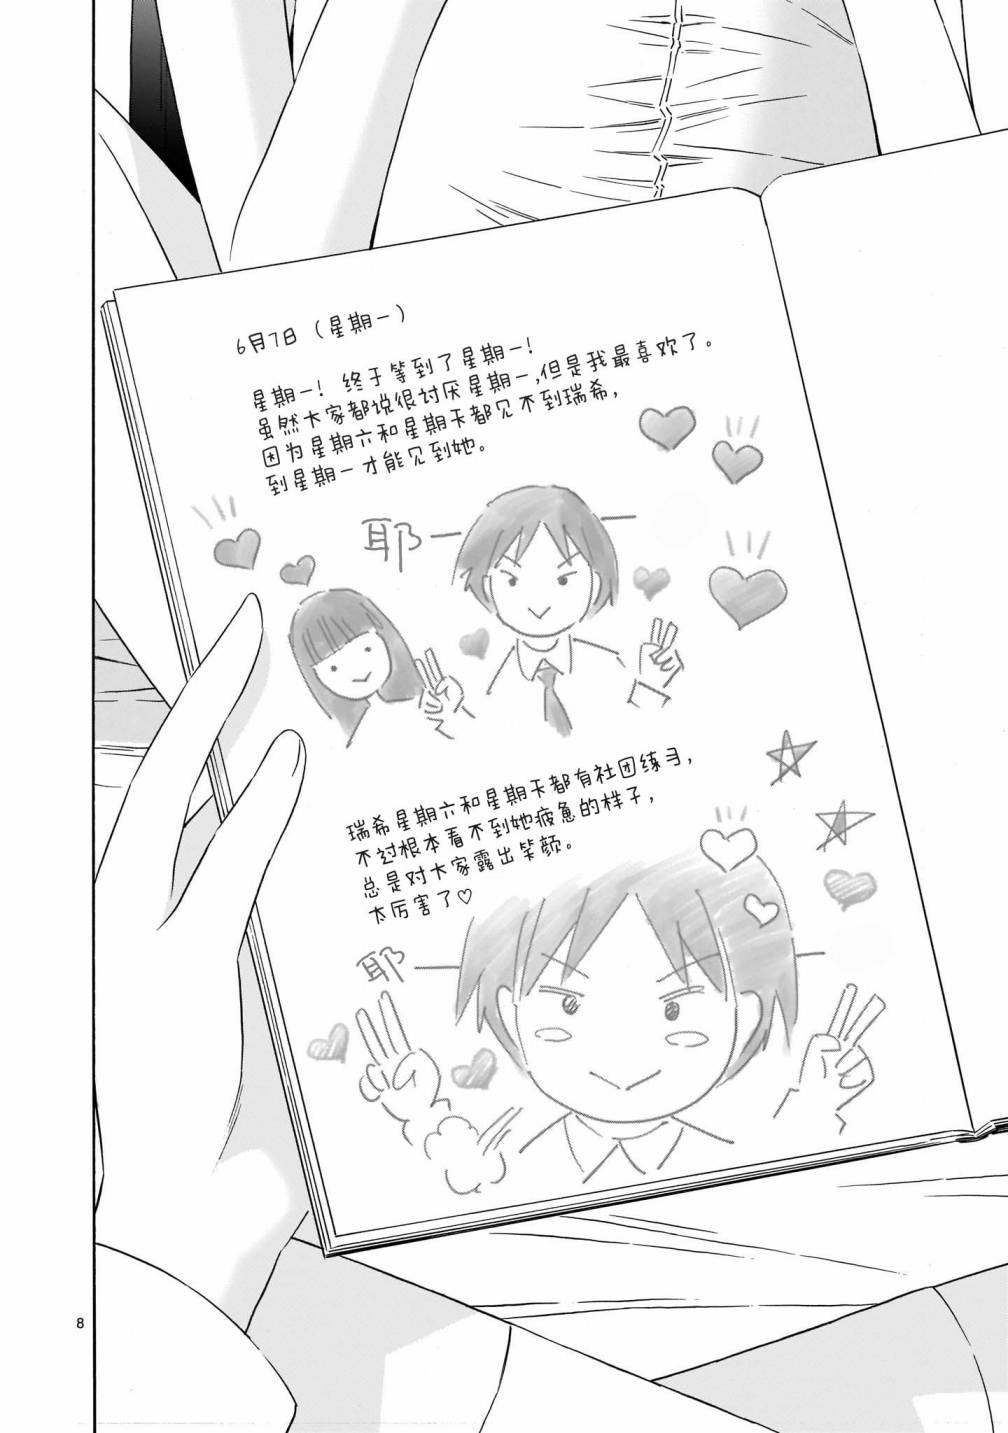 6月7日（星期一）
星期一！终于等到了星期一！
虽然大家都说很讨厌星期一，但是我最喜欢了。
因为星期六和星期天都见不到瑞希，
到星期一才能见到她。
耶一
瑞希星期六和星期天都有社团练习，
不过根本看不到她疲惫的样子，
总是对大家露出笑颜。
太厉害了♡
耶一
8